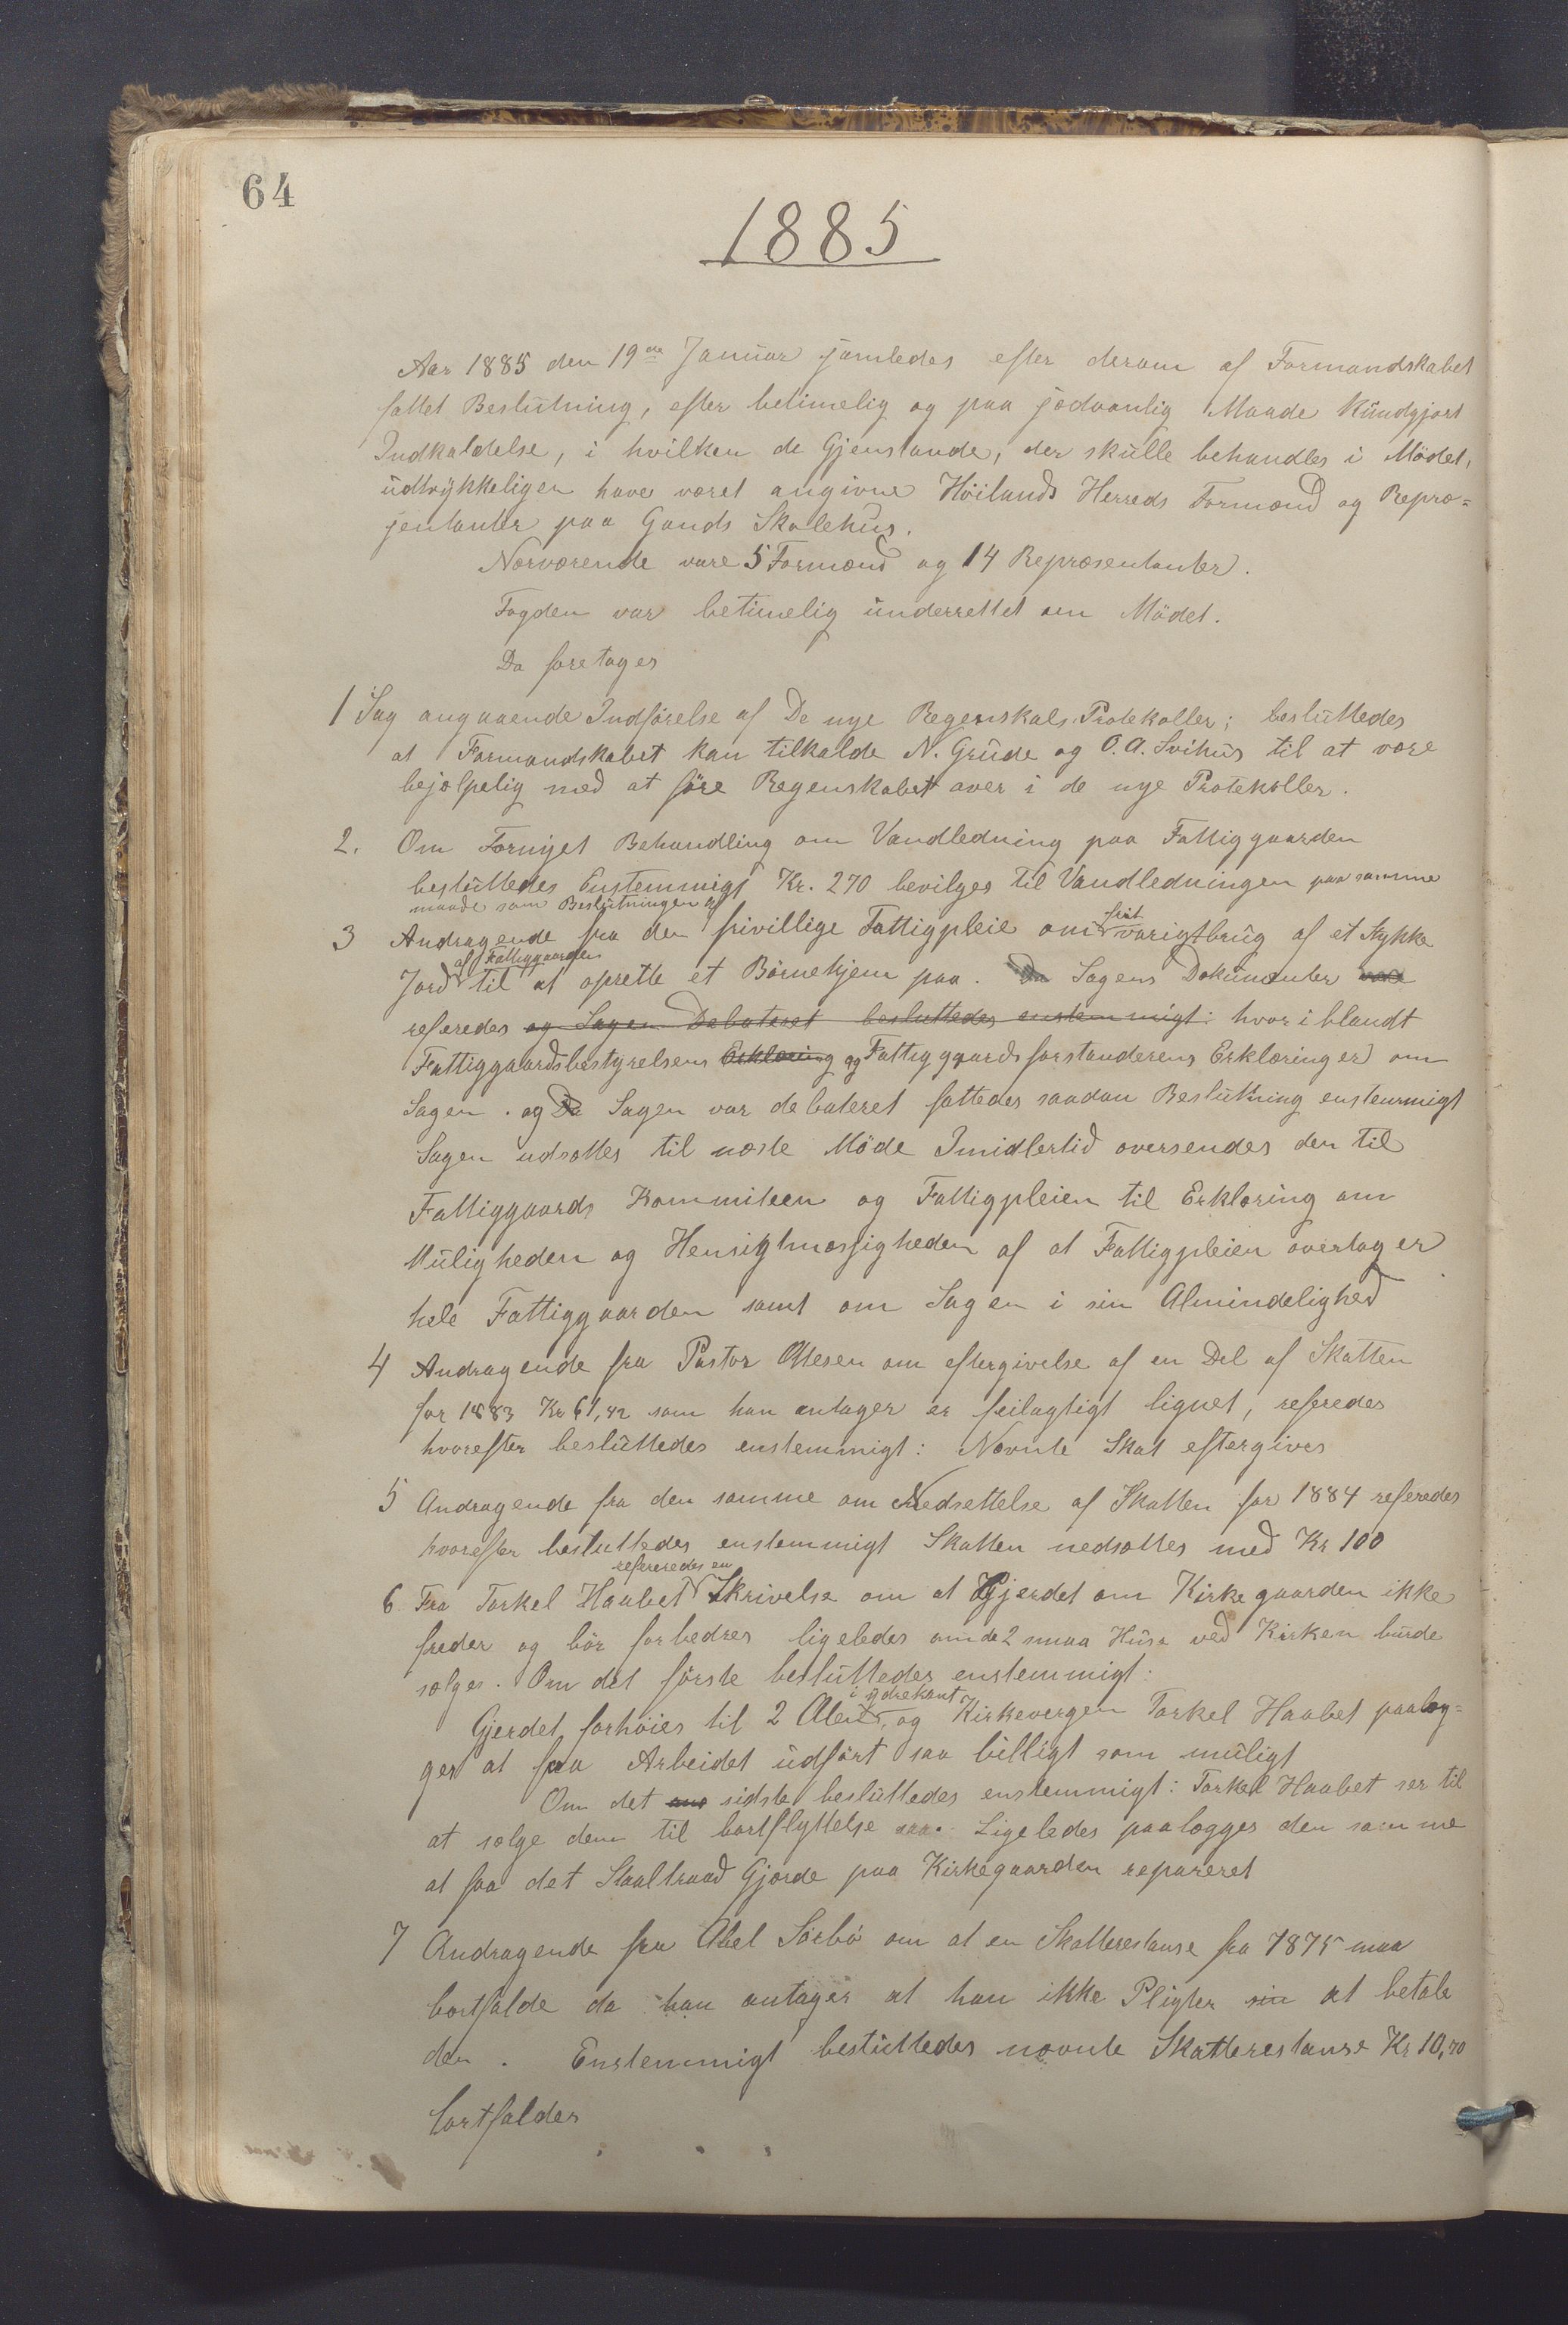 64
1885
Aar 1885 den 19de Januar samledes efter derom af Formandskabet
fattet Beslutning, efter betimelig og paa sedvanlig Maade Kundgjort
Indkaldelse, i hvilken de Gjenstande, der skulle behandles i Mødet,
udtrykkeligen have været angivne Höilands Herreds Formænd og Repræ=
sentanter paa Gands Skolehus.
Nærværende vare 5 Formænd og 14 Repræsentanter.
Fogden var betimelig underrettet om Mödet.
Da foretages
1 Sag angaaende Indförelse af De nye Regenskabs Protokoller; besluttedes
at Formandskabet kan tilkalde N. Grude og O. A. Svihus til at være
bejælpelig med at före Regenskabet over i de nye Protokoller.
2. Om Fornyet Behandling om Vandledning paa Fattiggaarden
besluttedes Enstemmigt Kr. 270 bevilges til Vandledningen paa samme
maade som Beslutningen af
3 Andragende fra den frivillige Fattigpleie om frit varigtbrug af et Stykke
Jord af Fattiggaarden til at oprette et Börnehjem paa. Da Sagens Dokumenter var
referedes og Sagen Debateret besluttedes enstemmigt: hvoriblandt
Fattiggaardsbestyrelsens Erklæring og Fattiggaardsforstanderens Erklæringer om
Sagen. og Da Sagen var debateret fattedes saadan Beslutning enstemmigt
Sagen udsættes til næste Möde Imidlertid oversendes den til
Fattiggaards Kommiteen og Fattigpleien til Erklæring om
Muligheden og Hensigtmæssigheden af at Fattigpleien overtager
hele Fattiggaarden samt om Sagen i sin Almindelighed
4 Andragende fra Pastor Ottesen om eftergivelse af en Del af Skatten
for 1883 Kr 61,42 som han antager er feilagtigt lignet, referedes
hvorefter besluttedes enstemmigt: Nævnte Skat eftergives
5 Andragende fra den samme om Nedsettelse af Skatten for 1884 referedes
hvorefter besluttedes enstemmigt Skatten nedsættes med Kr 100
6 Fra Torkel Haabet refereredes en Skrivelse om at Gjerdet om Kirkegaarden ikke
freder og bör forbedres ligeledes om de 2 smaa Huse ved Kirken burde
sælges. Om det förste besluttedes enstemmigt:
Gjerdet forhöies til 2 Alen i ydrekant, og Kirkevergen Torkel Haabet paalæg=
ges at faa Arbeidet udfört saa billigt som muligt
Om det sidste besluttedes enstemmigt: Torkel Haabet ser til
at sælge dem til bortflyttelse Ligeledes paalægges den samme
at faa det Staaltraad Gjærde paa Kirkegaarden repareret
7 Andragende fra Abel Sörbö om at en Skatterestanse fra 1875 maa
bortfalde da han antager at han ikke Pligter at betale
den. Enstemmigt besluttedes nævnte Skatterestanse Kr 10,70
bortfalder